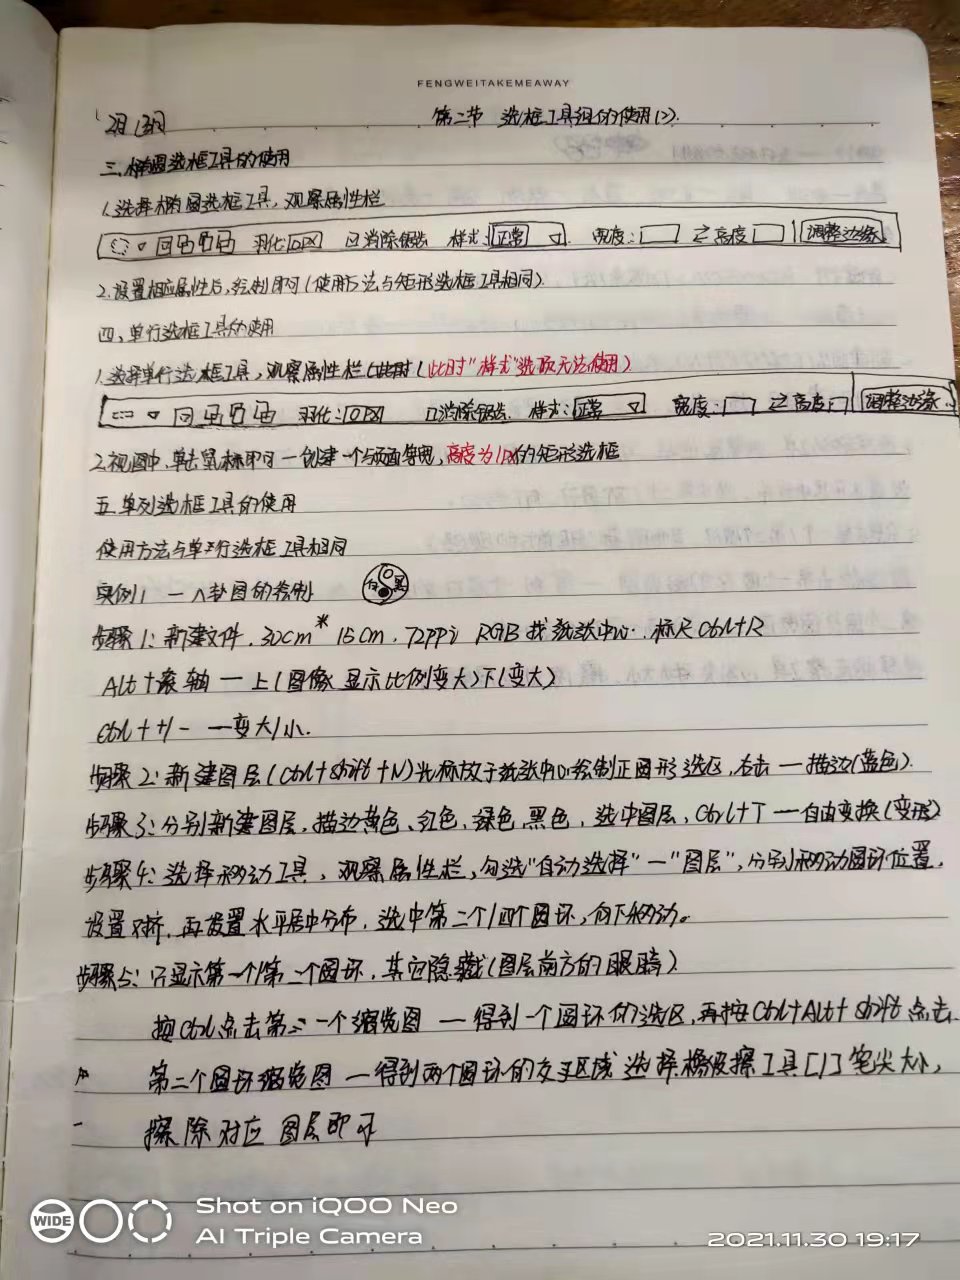 FENGWEITAKEMEAWAY
第二节 选框工具组的使用(2).
三、椭圆选框工具的使用
1.选择椭圆选框工具，观察属性栏
羽化:0PX 消除锯齿 样式:正常 宽度: ⇄高度 调整边缘
2.设置相应属性后,绘制即可(使用方法与矩形选框工具相同)
四、单行选框工具的使用
1.选择单行选框工具,观察属性栏(此时"样式"选项无法使用)
羽化:0PX 消除锯齿. 样式:正常 宽度: ⇄高度 调整边缘
2.视图中,单击鼠标即可一创建一个与页面等宽,高度为1px的矩形选框
五.单列选框工具的使用
使用方法与单行选框工具相同
实例1 一 八卦图的绘制 白 黑
步骤1:新建文件.30cm*15cm.72ppi RGB 找纸张中心.标尺Ctrl+R
Alt+滚轴一上(图像显示比例变大)下(变大)
Ctrl++/- 一变大/小.
步骤2:新建图层(Ctrl+shift+N)光标放于纸张中心绘制正圆形选区,右击一描边(蓝色).
步骤3:分别新建图层,描边黄色、红色,绿色,黑色,选中图层,Ctrl+T一自由变换(变形)
步骤4:选择移动工具,观察属性栏,勾选"自动选择"一"图层",分别移动圆环位置,
设置对齐,再设置水平居中分布,选中第二个/四个圆环,向下移动。
步骤5:只显示第一个/第二个圆环,其它隐藏(图层前方的眼睛)
按Ctrl点击第一个缩览图 一得到一个圆环的选区,再按Ctrl+Alt+shift点击
第二个圆环缩览图一得到两个圆环的交叉区域 选择橡皮擦工具[/]笔尖大小,
擦除对应图层即可
WIDE
Shot on iQOO Neo
AI Triple Camera
2021.11.30 19:17